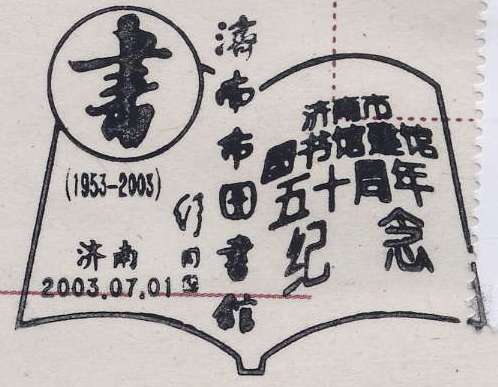 書
(1953-2003)
济南
2003.07.01
濟南市图書館
济南市
图书馆建馆
五十周年
纪念